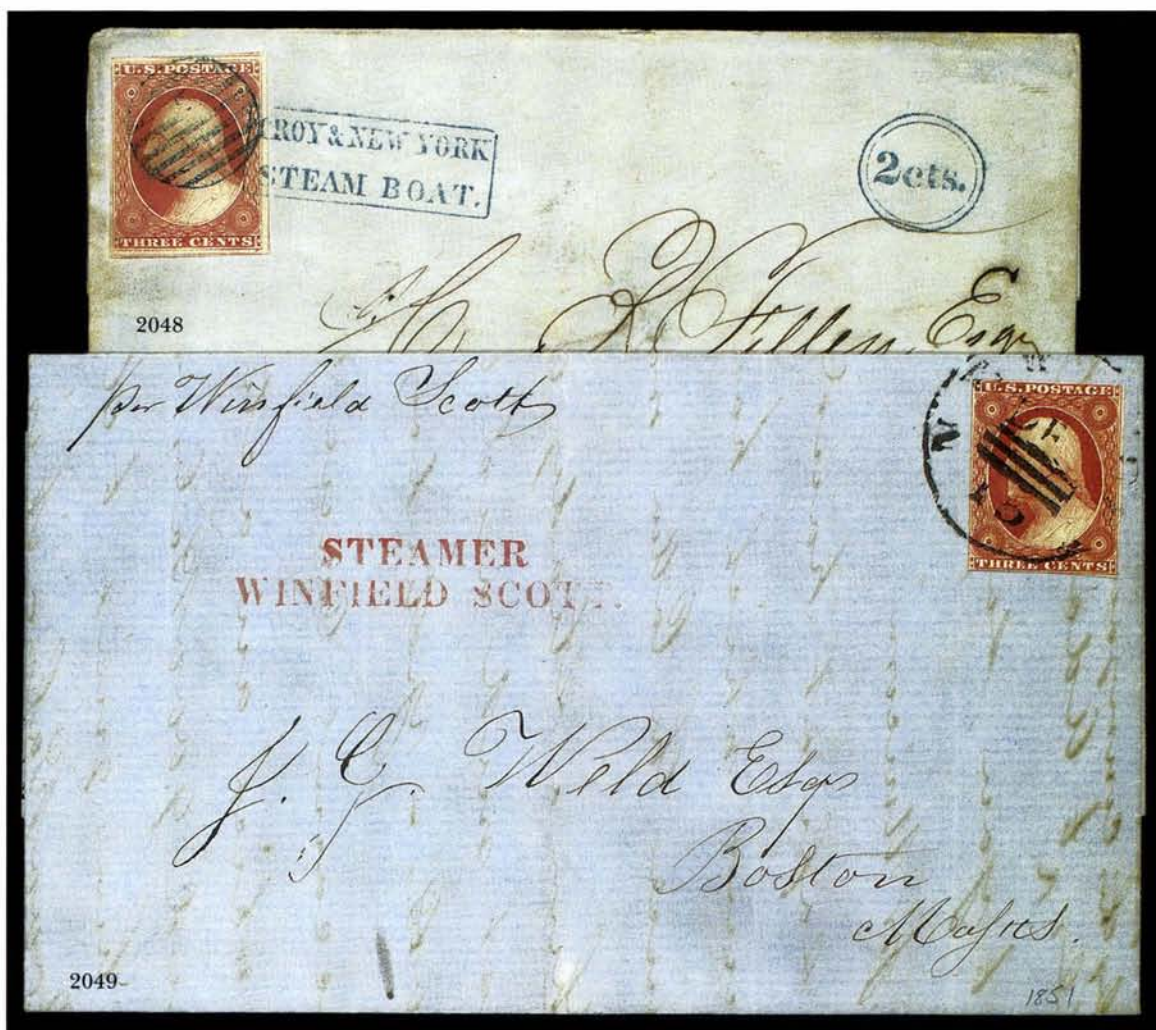 U.S. POSTAGE
THREE CENTS
TROY & NEW YORK
STEAM BOAT.
2cts.
Esqr
2048
per Winfield Scott
U.S. POSTAGE
THREE CENTS
STEAMER
WINFIELD SCOTT.
J. G. Weld Esqr
Boston
Mass.
2049
1851